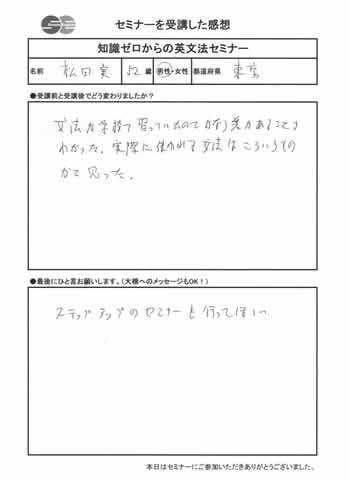 セミナーを受講した感想
知識ゼロからの英文法セミナー
名前 松田実 52 歳 男性・女性 都道府県 東京
●受講前と受講後でどう変わりましたか?
文法が学校で習っていたのとかなり差があることが
わかった。実際に使われる文法はこういうもの
かと思った。
●最後にひと言お願いします。(大橋へのメッセージもOK!)
ステップアップのセミナーも行ってほしい
本日はセミナーにご参加いただきありがとうございました。